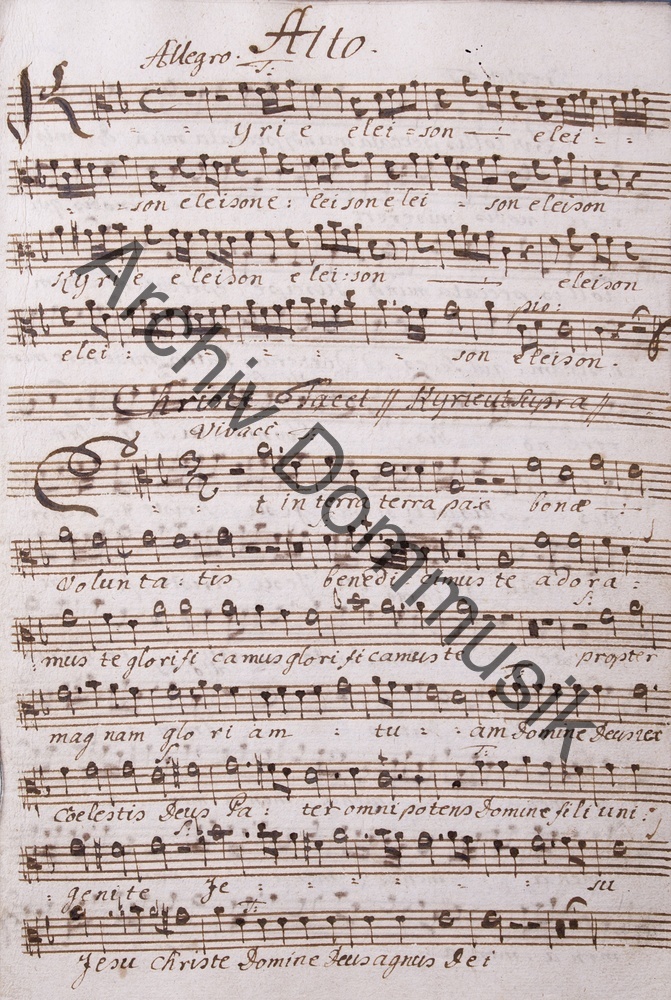 Alto.
Allegro. T:
Kyri e elei = son — elei = =
= = son eleisone : leisonelei = son eleison
Kyrie eleison elei:son — eleison
pio:
elei : = = = = son eleison.
Christe Tacet // Kyrie ut Supra //
Vivace. T:
Et in terra terra pax bonæ — : —
volunta : tis benedicimus te adora :
S:
mus te glorifi camus glorificamus te propter
T:
magnam glo ri am = tu = = am Domine Deus rex
S: T:
Coelestis Deus Pa : ter omnipotens Domine fili uni :
S:
genite Je = = = = = su
T:
Jesu Christe Domine Deus agnus Dei
Archiv Dommusik